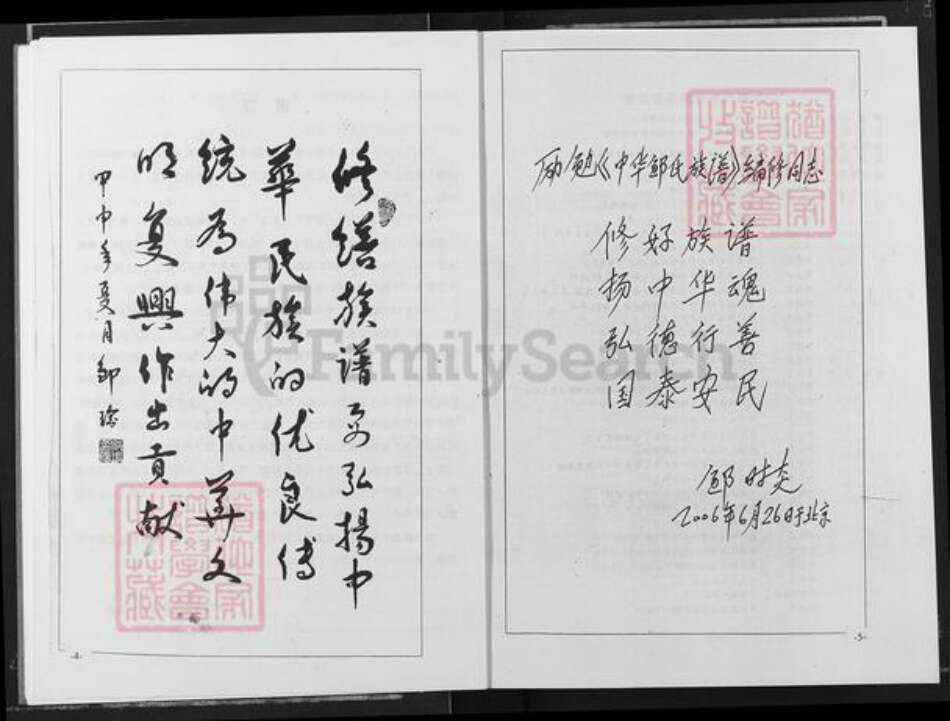 修缮族谱为弘揚中
華民族的优良传
统为伟大的中華文
明复興作出貢献
甲申年夏月邹瑜
-4-
励勉《中华邹氏族谱》编修同志
修好族谱
扬中华魂
弘德行善
国泰安民
邹时炎
2006年6月26日于北京
-5-
FamilySearch